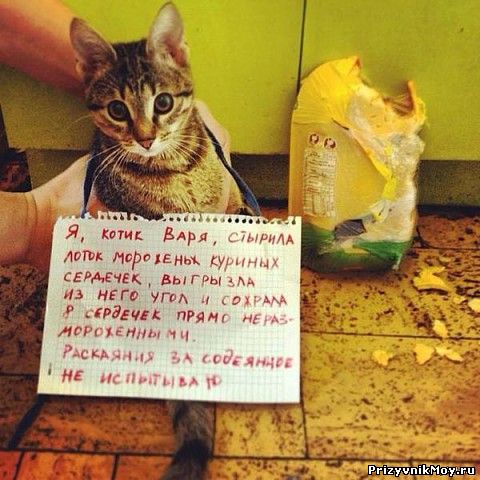 Я, котик Варя, стырила
лоток мороженых куриных
сердечек, выгрызла
из него угол и сожрала
8 сердечек прямо нераз-
мороженными.
Раскаяния за содеянное
не испытываю
PrizyvnikMoy.ru